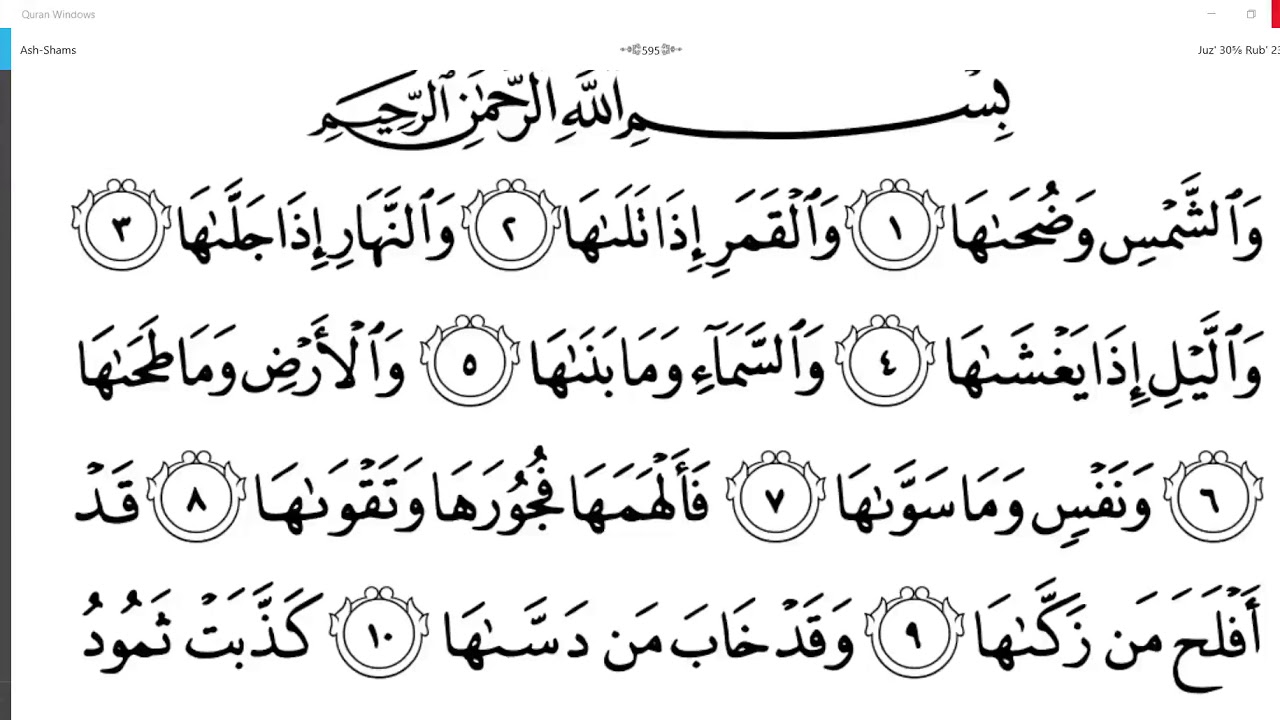 Quran Windows
Ash-Shams
595
Juz' 30⅝ Rub' 23
بِسْمِ ٱللَّهِ ٱلرَّحْمَٰنِ ٱلرَّحِيمِ
وَٱلشَّمْسِ وَضُحَىٰهَا ١ وَٱلْقَمَرِ إِذَا تَلَىٰهَا ٢ وَٱلنَّهَارِ إِذَا جَلَّىٰهَا ٣
وَٱلَّيْلِ إِذَا يَغْشَىٰهَا ٤ وَٱلسَّمَآءِ وَمَا بَنَىٰهَا ٥ وَٱلْأَرْضِ وَمَا طَحَىٰهَا
٦ وَنَفْسٍ وَمَا سَوَّىٰهَا ٧ فَأَلْهَمَهَا فُجُورَهَا وَتَقْوَىٰهَا ٨ قَدْ
أَفْلَحَ مَن زَكَّىٰهَا ٩ وَقَدْ خَابَ مَن دَسَّىٰهَا ١٠ كَذَّبَتْ ثَمُودُ